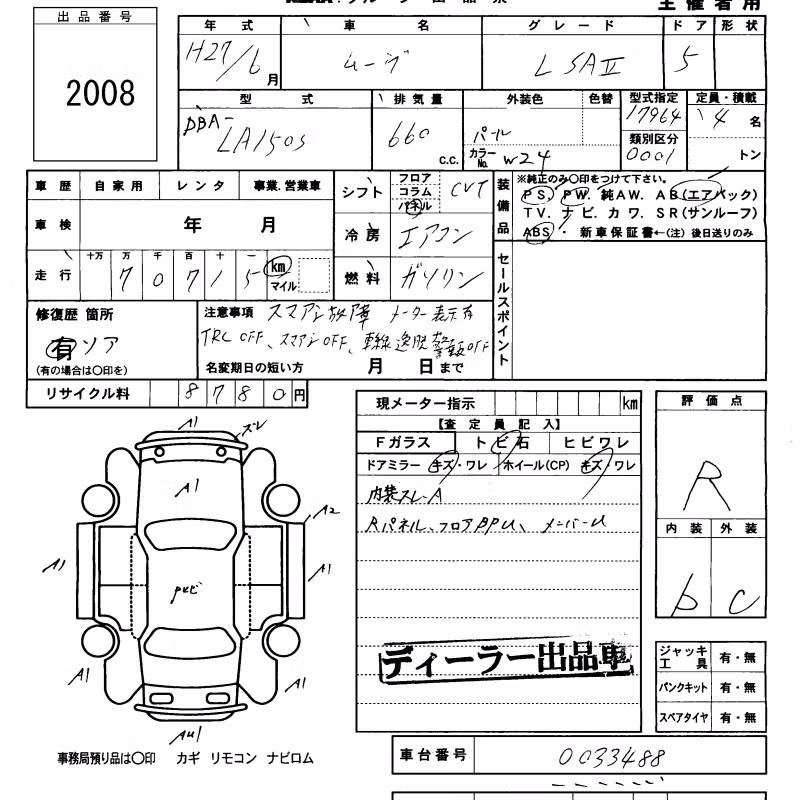 出品番号
2008
主催者用
年式 車名 グレード ドア 形状
H27/6月 ムーヴ L SAⅡ 5
型式 排気量 外装色 色替 型式指定 定員・積載
DBA-LA150S 660 c.c. パール 17964 4名
カラーNo. W24 類別区分 0001 トン
車歴 自家用 レンタ 事業.営業車
車検 年 月
走行 十万 万 千 百 十 一
7 0 7 1 5 km マイル
シフト フロア コラム パネル CVT
冷房 エアコン
燃料 ガソリン
装備品 ※純正のみ○印をつけて下さい。
PS. PW. 純AW. AB(エアバック)
TV. ナビ. カワ. SR(サンルーフ)
ABS ・ 新車保証書←(注) 後日送りのみ
セールスポイント
修復歴 箇所
有 リア
(有の場合は○印を)
注意事項 スマアシ故障 メーター表示有
TRC OFF、スマアシOFF、車線逸脱警報OFF
名変期日の短い方 月 日まで
リサイクル料 8 7 8 0 円
現メーター指示 km
【査定員記入】
Fガラス トビ石 ヒビワレ
ドアミラー キズ・ワレ ホイール(CP) キズ・ワレ
内装スレ-A
Rパネル、フロアBPU、メンバーU
ディーラー出品車
評価点
R
内装 外装
b C
ジャッキ工具 有・無
パンクキット 有・無
スペアタイヤ 有・無
A1 ズレ
A1
A2
A1 A1
A1 A1
AU1
事務局預り品は○印 カギ リモコン ナビロム
車台番号 0033488